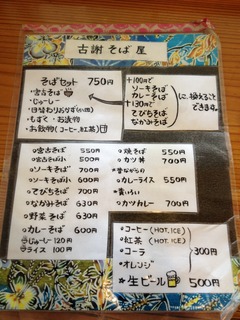 古謝そば屋
そばセット 750円
・宮古そば
・じゅーしー
・日替わりおかず(小鉢)
・もずく・お漬物
・お飲物(コーヒー,紅茶)
+100円で
ソーキそば
カレーそば
+130円で
てびちそば
なかみそば
に、換えることできます。
宮古そば 550円
宮古そば小 500円
ソーキそば 700円
ソーキそば小 600円
てびちそば 700円
なかみそば 630円
野菜そば 630円
カレーそば 600円
じゅーしー 120円
ライス 100円
焼そば 550円
カツ丼 700円
昔ながらの
カレーライス 550円
黄いろい
カツカレー 700円
コーヒー(HOT, ICE)
紅茶 (HOT, ICE)
コーラ
オレンジ
300円
★生ビール 500円